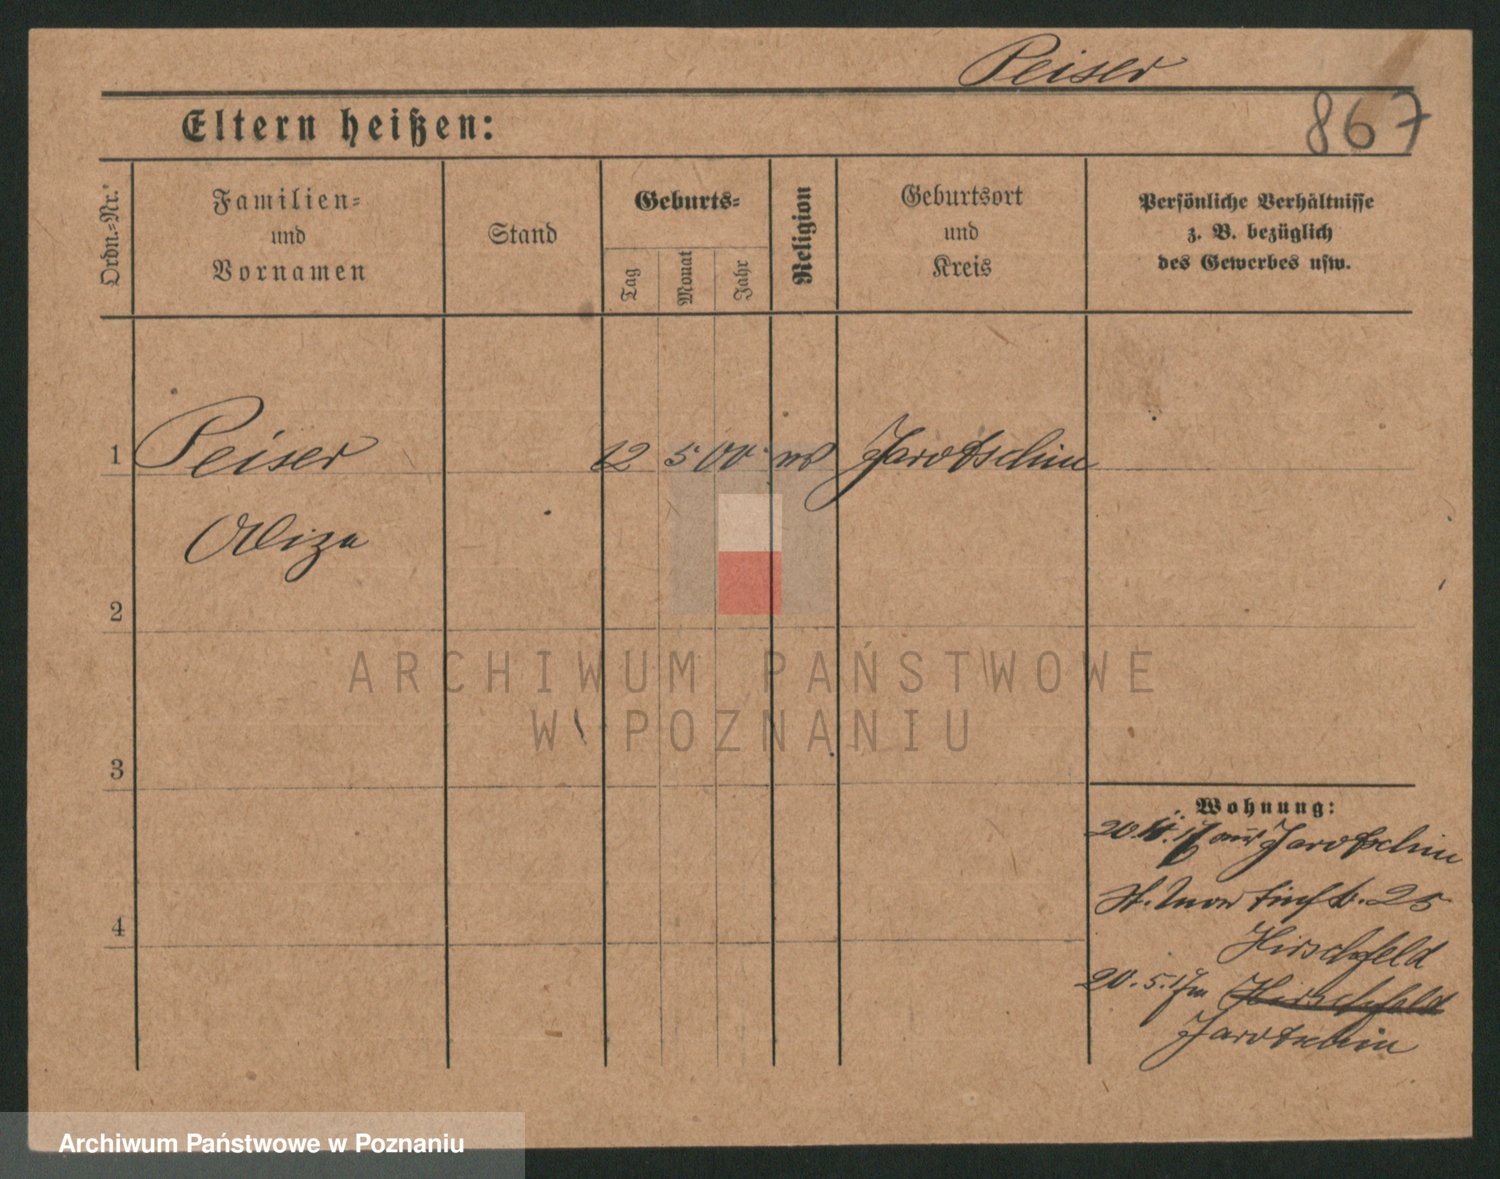 Peiser
867
Eltern heißen:
Ordn.-Nr.
Familien-
und
Vornamen
Stand
Geburts-
Tag
Monat
Jahr
Religion
Geburtsort
und
Kreis
Persönliche Verhältnisse
z. B. bezüglich
des Gewerbes usw.
1 Peiser 12 5 00 Jarotschin
2
ARCHIWUM PAŃSTWOWE
W POZNANIU
3
4
Wohnung:
20. 17 aus Jarotschin
St. Martinstr. 25
Hirschfeld
20. 5. 17 Hirschfeld
Jarotschin
Archiwum Państwowe w Poznaniu